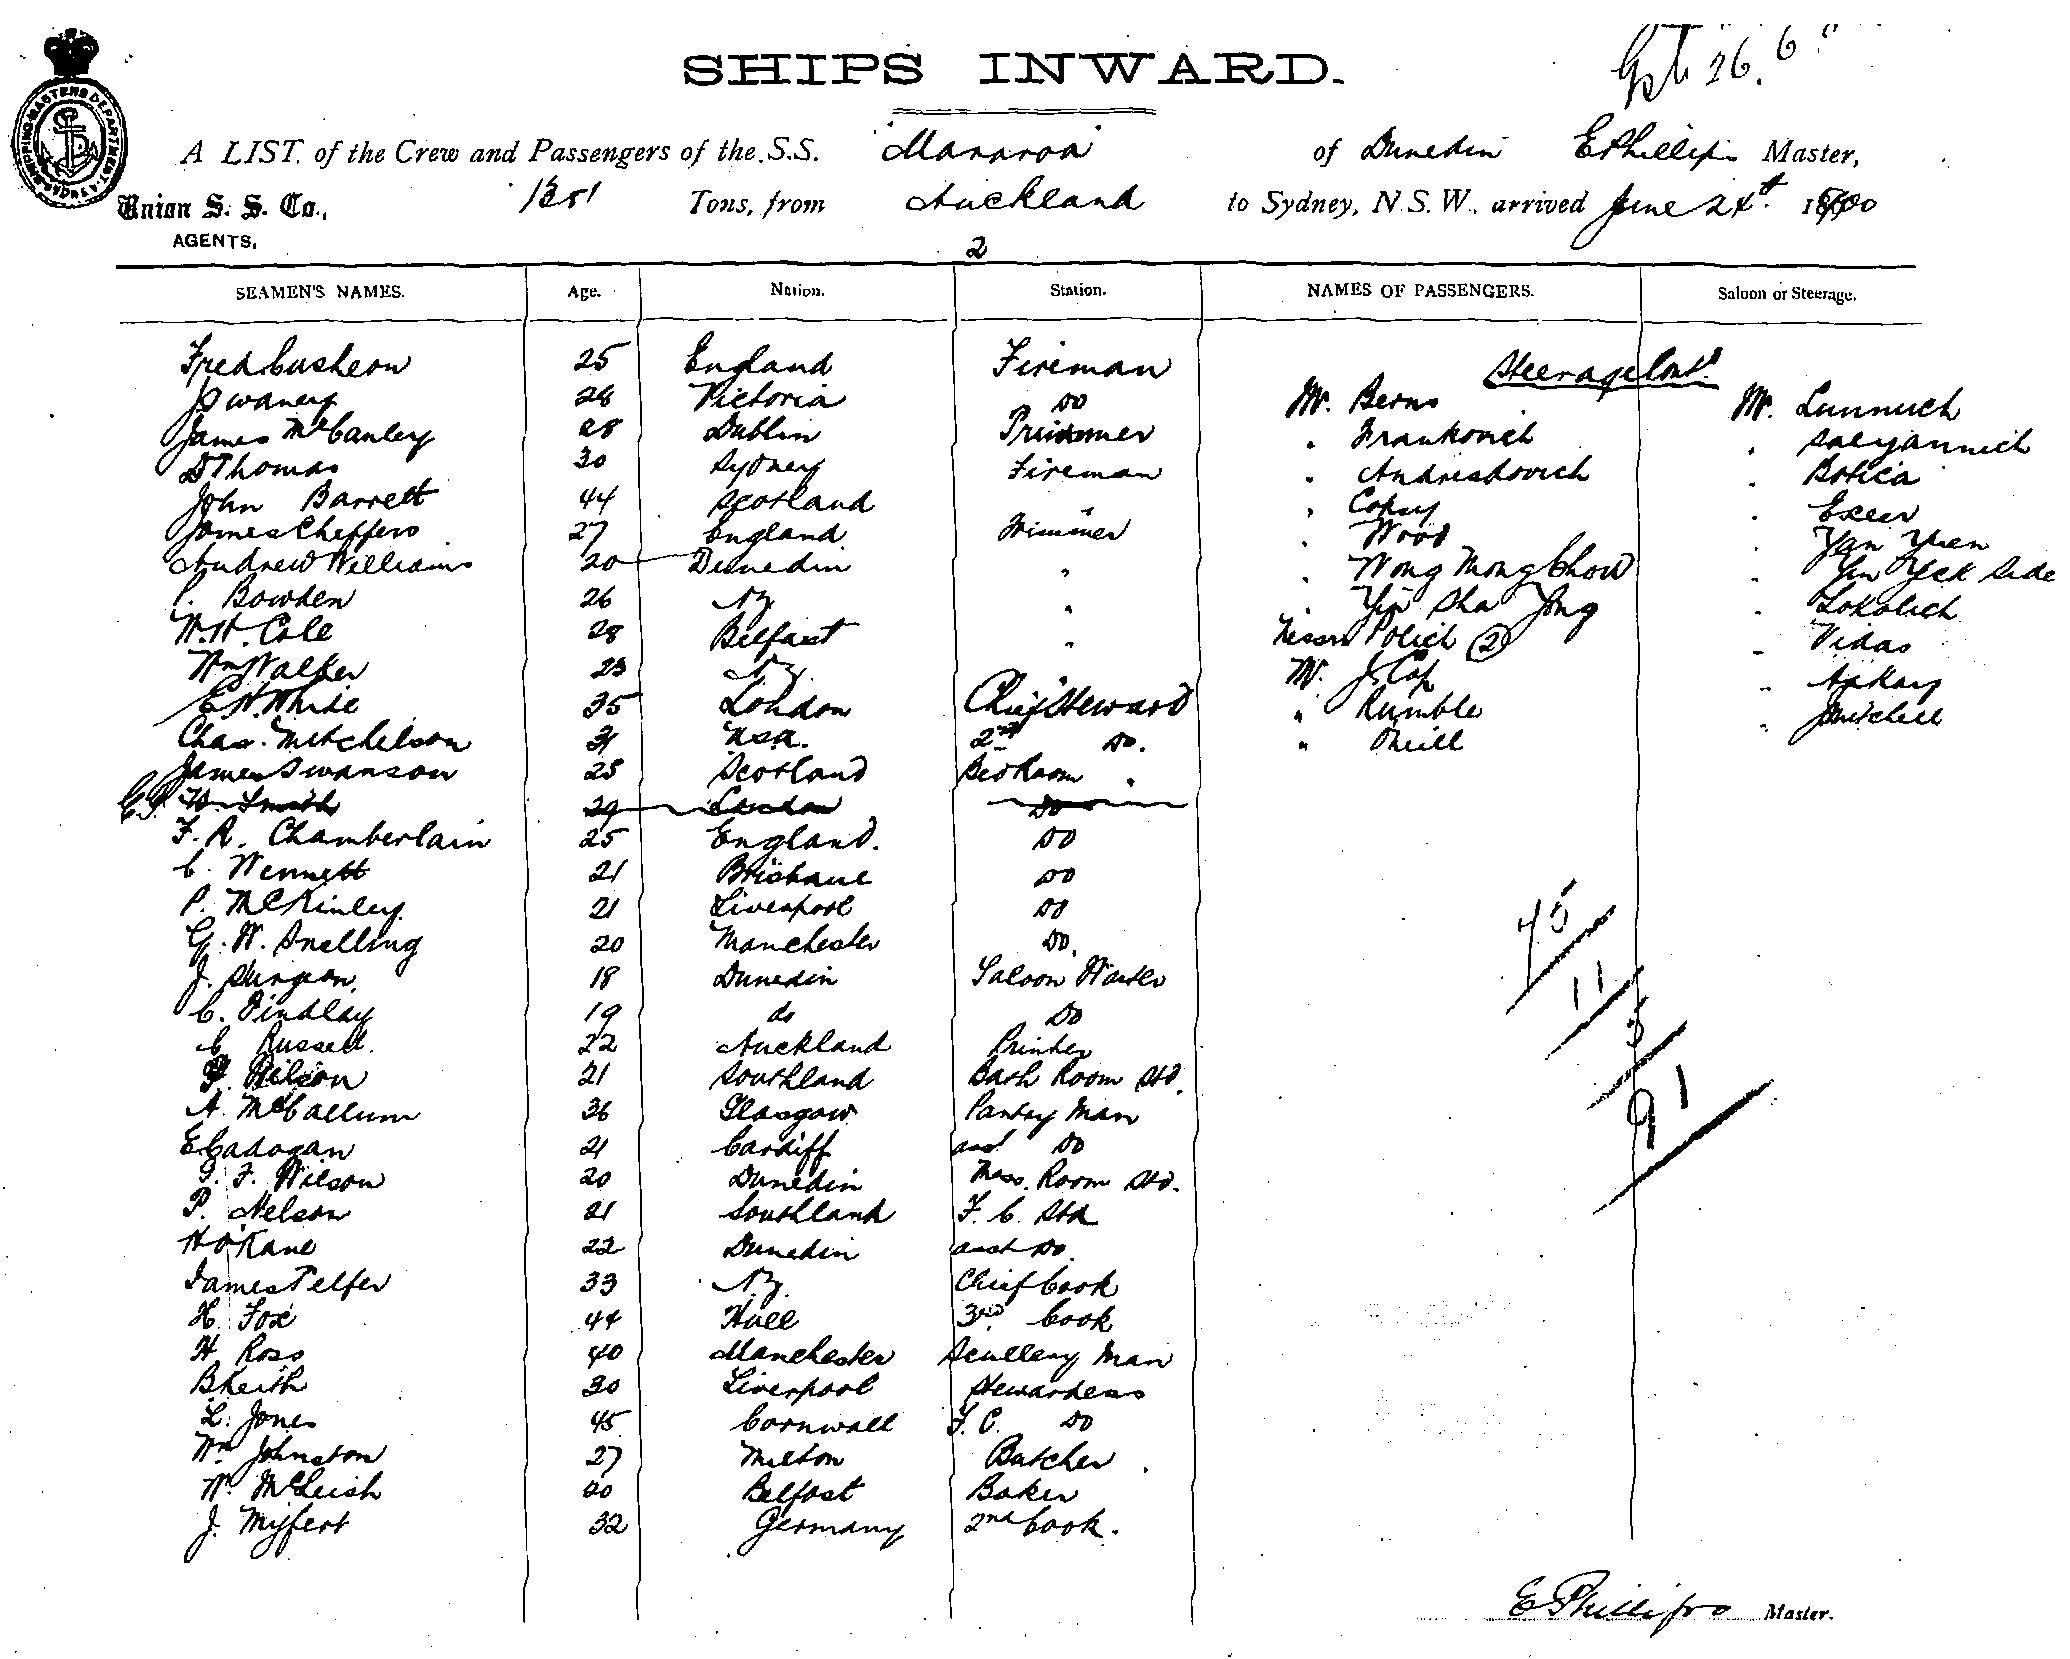 SHIPS INWARD.
26.6
SHIPPING MASTERS DEPARTMENT
A LIST. of the Crew and Passengers of the S.S. Mararoa of Dunedin E Phillips Master,
Union S. S. Co., 1381 Tons, from Auckland to Sydney, N.S.W., arrived June 24t. 1900
AGENTS.
2
SEAMEN'S NAMES. Age. Nation. Station. NAMES OF PASSENGERS. Saloon or Steerage.
Steerage Cont'd
Fred Cusheon 25 England Fireman Mr. Berns Mr. Lunnuch
J Swaney 28 Victoria Do " Frankovich "
James McCauley 28 Dublin " Andreskovich " Botica
D Thomas 30 Sydney Fireman " Copsy "
John Barrett 44 Scotland " " Wood " Yan Yuen
James Cheffers 27 England Trimmer " Wong Mong Chow " Yin Yck Side
Andrew Williams 20 Dunedin " " Yip Sha Jong " Sokolich
C. Bowden 26 NZ " Messrs Polich (2) " Vidas
W.H. Cole 28 Belfast " Mr. J. Cop "
Wm Walker 23 NZ " Rumble " Mitchell
E H White 35 London Chief Steward " Oneill
Chas. Mitchelson 31 USA. 2nd Do.
James Swanson 25 Scotland Bed Room "
W. Smith 29 London Do
F. R. Chamberlain 25 England. Do
C. Wennett 21 Brisbane Do
P. McKinley 21 Liverpool Do
G. W. Snelling 20 Manchester Do.
J. Sturgeon. 18 Dunedin Saloon Waiter
C. Findlay 19 do Do
C Russell. 22 Auckland Printer
Wilson 21 Southland Bath Room Std.
A. McCallum 36 Glasgow Pantry Man
E Cadogan 21 Cardiff asst Do
F. Wilson 20 Dunedin Mess. Room Std.
P. Nelson 21 Southland F. C. Std
H O'Kane 22 Dunedin asst Do.
James Telfer 33 NZ. Chief Cook
H. Fox 44 Hull 3rd Cook
H Ross 40 Manchester Scullery Man
B Keith 30 Liverpool Stewardess
L. Jones 45 Cornwall F. C. Do
Wm Johnston 27 Milton Butcher
W. McLeish 20 Belfast Baker
J. Myfert 32 Germany 2nd Cook.
75
11
5
91
E Phillips Master.